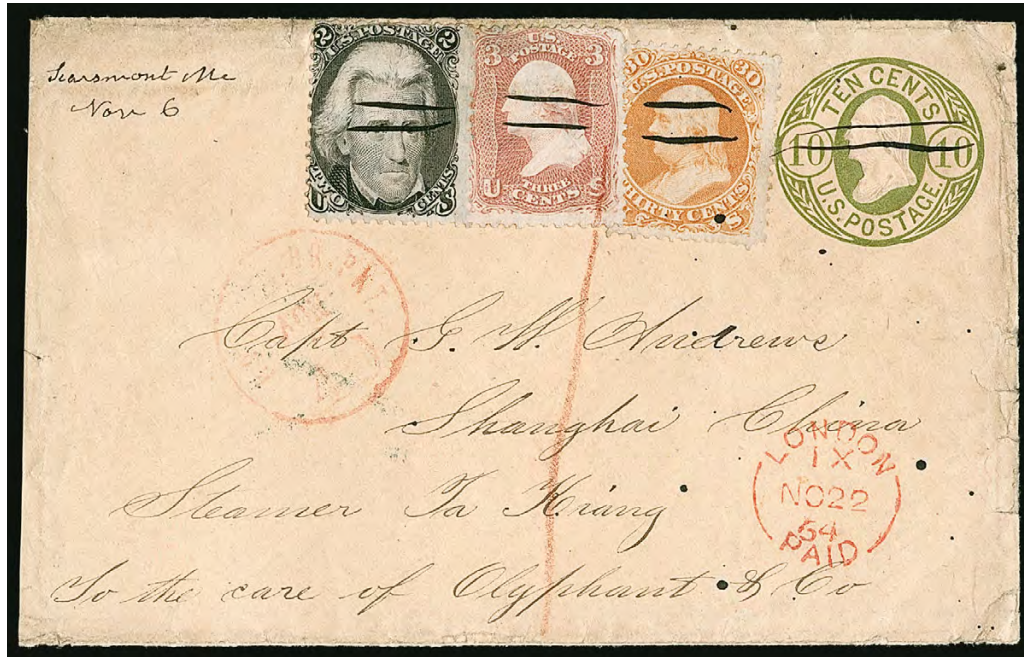 Searsmont Me
Nov 6
2 U.S. POSTAGE 2
U TWO CENTS S
3 U.S. POSTAGE 3
U THREE CENTS S
30 U.S. POSTAGE 30
THIRTY CENTS S
TEN CENTS
10 10
U.S. POSTAGE.
BR. PKT.
Capt G. W. Andrews
Shanghai China
Steamer Ta Kiang
To the care of Olyphant & Co
LONDON
IX
NO 22
64
PAID